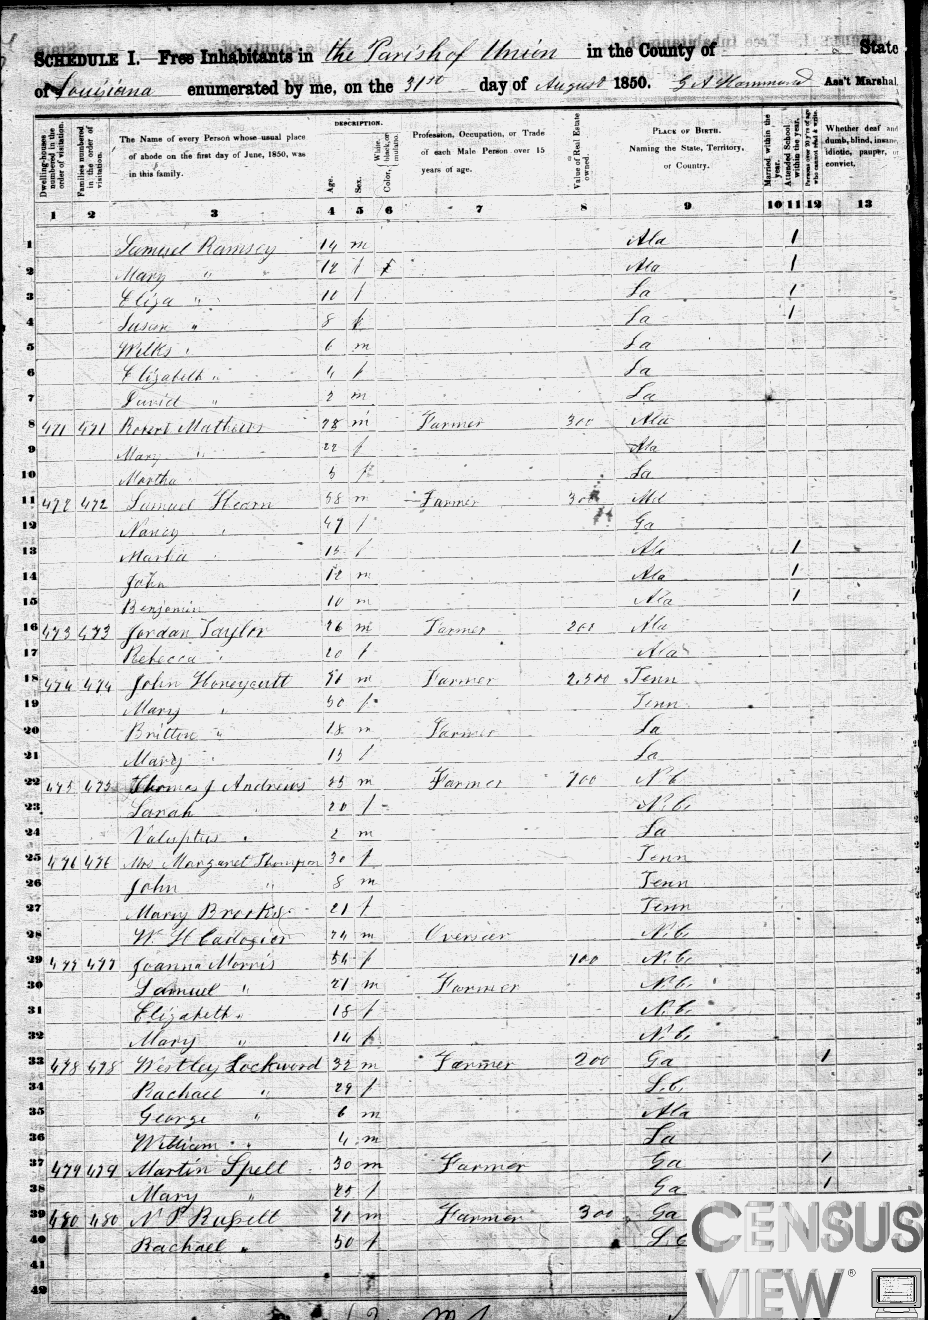 SCHEDULE I.—Free Inhabitants in the Parish of Union in the County of State
of Louisiana enumerated by me, on the 31st day of August 1850. G A Hammond Ass't Marshal
Dwelling-houses numbered in the order of visitation.
Families numbered in the order of visitation.
The Name of every Person whose usual place of abode on the first day of June, 1850, was in this family.
DESCRIPTION.
Age.
Sex.
White, black, or mulatto.
Color,
Profession, Occupation, or Trade of each Male Person over 15 years of age.
Value of Real Estate owned.
PLACE OF BIRTH.
Naming the State, Territory, or Country.
Married within the year.
Attended School within the year.
Persons over 20 y'rs of age who cannot read & write.
Whether deaf and dumb, blind, insane, idiotic, pauper, or convict.
1 2 3 4 5 6 7 8 9 10 11 12 13
1 Samuel Ramsey 14 m Ala 1
2 Mary " 12 f Ala 1
3 Eliza " 10 f La 1
4 Susan " 8 f La 1
5 Wilks " 6 m La
6 Elizabeth " 4 f La
7 David " 2 m La
8 471 471 Robert Mathews 28 m Farmer 300 Ala
9 Mary " 22 f Ala
10 Martha 5 f La
11 472 472 Samuel Hearn 58 m Farmer 300 Md
12 Nancy " 47 f Ga
13 Martha " 15 f Ala 1
14 John 12 m Ala 1
15 Benjamin 10 m Ala 1
16 473 473 Jordan Taylor 26 m Farmer 200 Ala
17 Rebecca " 20 f Ala
18 474 474 John Honeycutt m Farmer 2,500 Tenn
19 Mary " 50 f Tenn
20 Britton " 18 m Farmer La
21 Mary " 13 f La
22 475 475 Thomas J Andrews m Farmer 700 N.C.
23 Sarah 20 f N.C.
24 " 2 m La
25 476 476 Mrs Margaret Thompson 30 f Tenn
26 John " 8 m Tenn
27 Mary Brooks 21 f Tenn
28 W. H 24 m Overseer N.C.
29 477 477 Joanna Morris 54 f 100 N.C.
30 Samuel " 21 m Farmer N.C.
31 Elizabeth " 18 f N.C.
32 Mary " 14 f N.C.
33 478 478 Westley Lockword 32 m Farmer 200 Ga 1
34 Rachael " 29 f S.C.
35 George " 6 m Ala
36 William " 4 m La
37 479 479 Martin Spell 30 m Farmer Ga 1
38 Mary " 25 f Ga 1
39 480 480 N P Russell m Farmer 300 Ga
40 Rachael " 50 f S.C
41
42
CENSUS
VIEW®